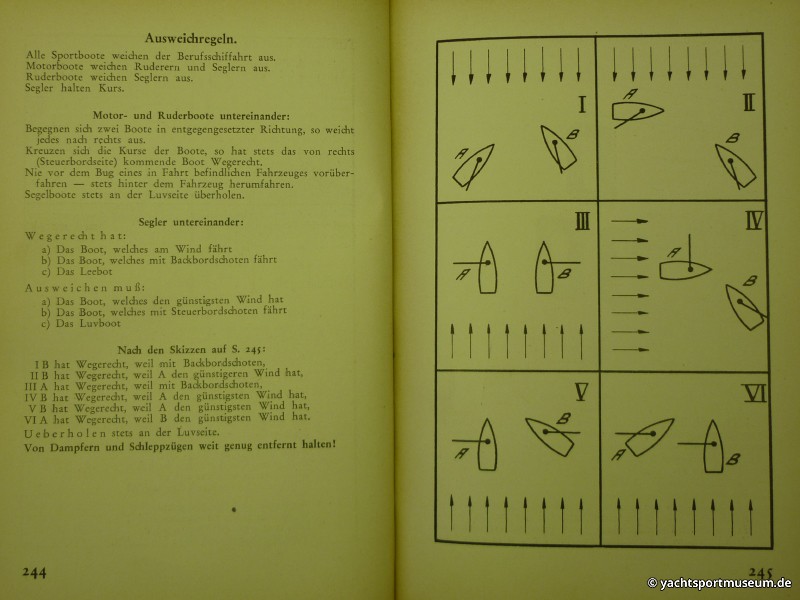 Ausweichregeln.
Alle Sportboote weichen der Berufsschiffahrt aus.
Motorboote weichen Ruderern und Seglern aus.
Ruderboote weichen Seglern aus.
Segler halten Kurs.
Motor- und Ruderboote untereinander:
Begegnen sich zwei Boote in entgegengesetzter Richtung, so weicht
jedes nach rechts aus.
Kreuzen sich die Kurse der Boote, so hat stets das von rechts
(Steuerbordseite) kommende Boot Wegerecht.
Nie vor dem Bug eines in Fahrt befindlichen Fahrzeuges vorüber-
fahren — stets hinter dem Fahrzeug herumfahren.
Segelboote stets an der Luvseite überholen.
Segler untereinander:
Wegerecht hat:
a) Das Boot, welches am Wind fährt
b) Das Boot, welches mit Backbordschoten fährt
c) Das Leeboot
Ausweichen muß:
a) Das Boot, welches den günstigsten Wind hat
b) Das Boot, welches mit Steuerbordschoten fährt
c) Das Luvboot
Nach den Skizzen auf S. 245:
I B hat Wegerecht, weil mit Backbordschoten,
II B hat Wegerecht, weil A den günstigeren Wind hat,
III A hat Wegerecht, weil mit Backbordschoten,
IV B hat Wegerecht, weil A den günstigsten Wind hat,
V B hat Wegerecht, weil A den günstigsten Wind hat,
VI A hat Wegerecht, weil B den günstigsten Wind hat.
Ueberholen stets an der Luvseite.
Von Dampfern und Schleppzügen weit genug entfernt halten!
244
I
A
B
II
A
B
III
A
B
IV
A
B
V
A
B
VI
A
B
245
© yachtsportmuseum.de